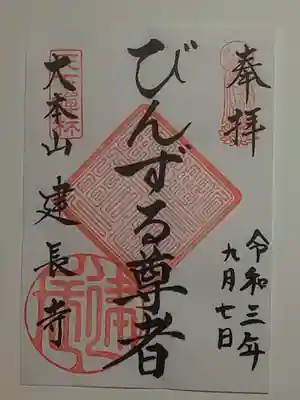 奉拝
令和三年
九月七日
びんずる尊者
大本山建長寺